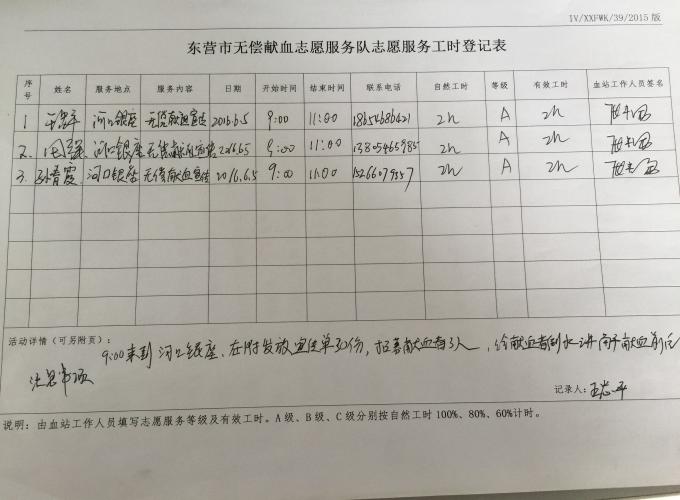 IV/XXFWK/39/2015 版
东营市无偿献血志愿服务队志愿服务工时登记表
序号 姓名 服务地点 服务内容 日期 开始时间 结束时间 联系电话 自然工时 等级 有效工时 血站工作人员签名
1 河口银座 无偿献血宣传 2016.6.5 9:00 11:00 2h A 2h
2. 河口银座 无偿献血宣传 2016.6.5 9:00 11:00 13805465985 2h A 2h
3. 孙晋霞 河口银座 无偿献血宣传 2016.6.5 9:00 11:00 2h A 2h
活动详情（可另附页）： 9:00来到河口银座、在附发放宣传单30份，招募献血者3人，给献血者倒水讲解献血前后
注意事项
记录人：王志平
说明：由血站工作人员填写志愿服务等级及有效工时。A 级、B 级、C 级分别按自然工时 100%、80%、60%计时。